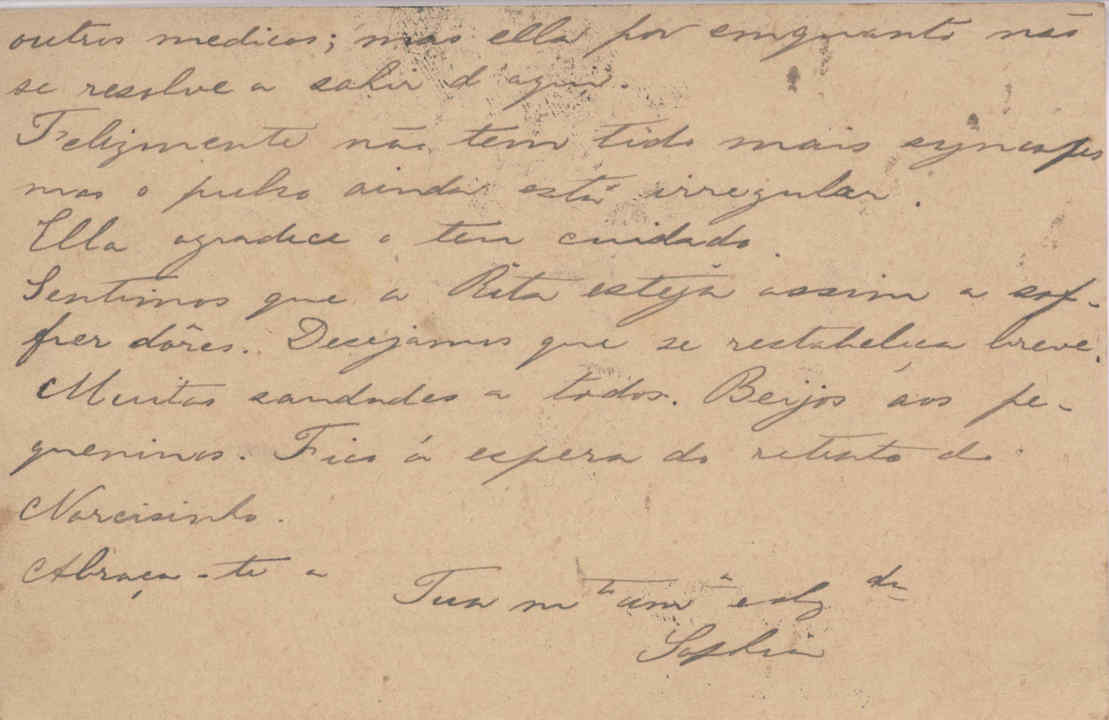 outros medicos; mas ella por emquanto não
se resolve a sahir d'aqui.
Felizmente não tem tido mais syncopes
mas o pulso ainda está irregular.
Ella agradece o teu cuidado.
Sentimos que a Rita esteja assim a sof-
frer dôres. Desejamos que se restabeleça breve.
Muitas saudades a todos. Beijos aos pe-
queninos. Fico á espera do retrato do
Narcisinho.
Abraça-te a
Tua m.ta am.a e
Sophia